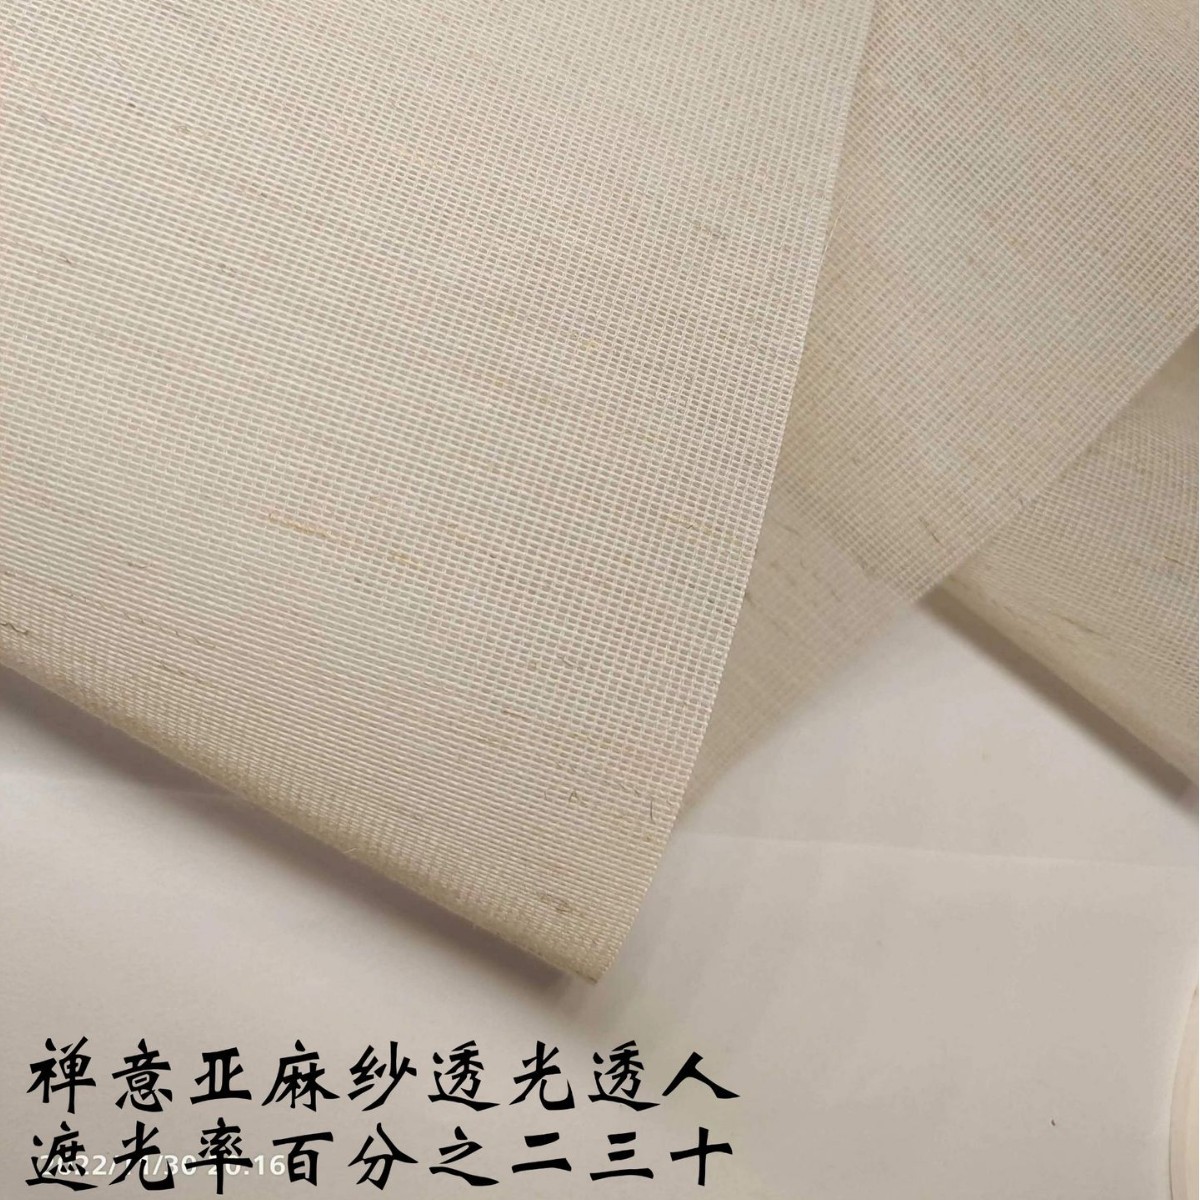 禅意亚麻纱透光透人
遮光率百分之二三十
2022/11/30 20:16